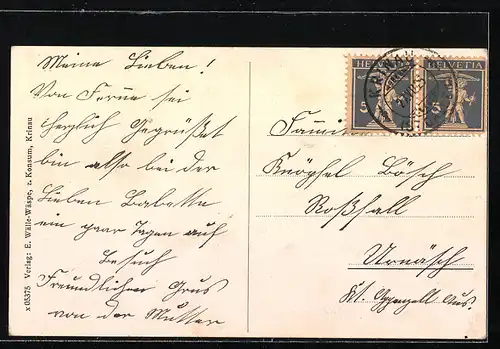 Meine Lieben!
Von Ferne sei
herzlich Gegrüßet
bin also bei der
Lieben Babette
ein paar Tagen auf
Besuch
Freundlichen Gruss
von der Mutter
x 05375 Verlag: E. Wälle-Wäspe, z. Konsum, Krinau
HELVETIA HELVETIA
5 5
KRINAU
Famili
Knöpfel Bösch
Roßfall
Urnäsch
Kt. Appenzell Aus.